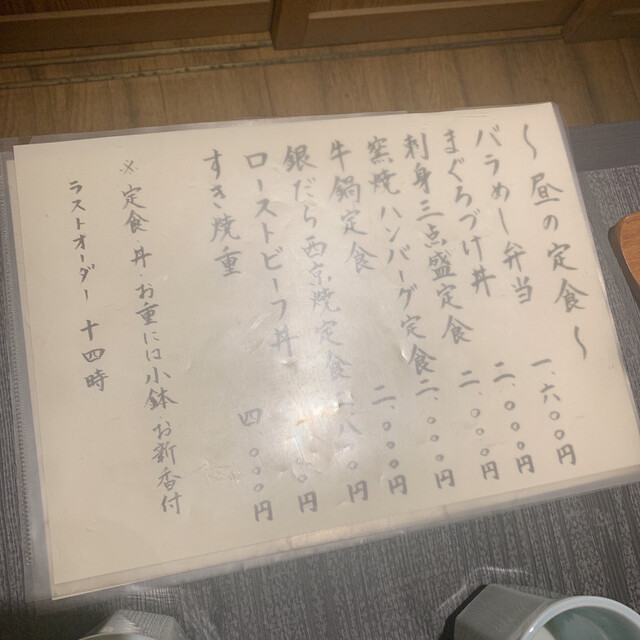 〜昼の定食〜
バラめし弁当 一、六〇〇円
まぐろづけ丼 二、〇〇〇円
刺身三点盛定食 二、〇〇〇円
窯焼ハンバーグ定食 二、〇〇〇円
牛鍋定食 二、〇〇〇円
銀だら西京焼定食 八〇〇円
ローストビーフ丼 〇〇円
すき焼重 四、〇〇〇円
※定食・丼・お重には小鉢・お新香付
ラストオーダー 十四時